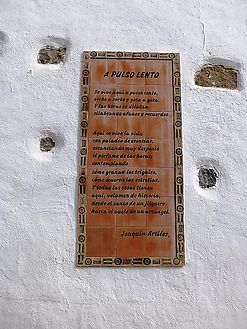 A PULSO LENTO
Se vive aquí a pulso lento,
sorbo a sorbo y gota a gota.
Y las horas se dilatan
silabeando afanes y recuerdos.
Aquí se vive la vida
con paladeo de esencias,
escanciando muy despacio
el perfume de las horas:
contemplando
cómo granan los trigales,
cómo mueren las estrellas.
Y todas las cosas tienen
aquí, volumen de historia,
desde el canto de un jilguero
hasta el vuelo de un arcángel.
Joaquín Artiles.